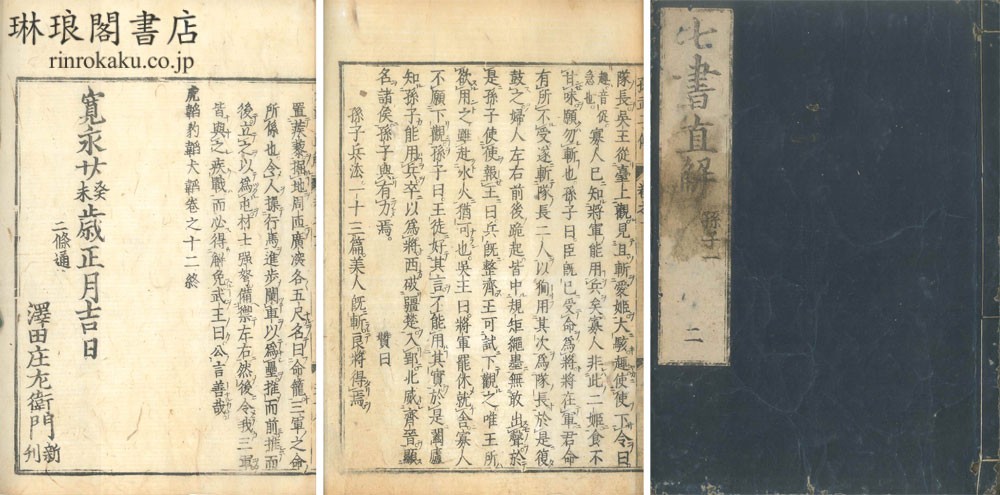 琳琅閣書店
rinrokaku.co.jp
置蒺藜掘地周匝廣深各五尺名曰命籠三軍之命
所係也令人操行馬進步闌車以爲壘推而前推而
後立之以爲屯材士强弩備禦左右然後令我三軍
皆與之疾戰而必得解免武王曰公言善哉
虎韜豹韜犬韜卷之十二終
寛永廿癸未歳正月吉日
二條通
澤田庄左衛門新刊
隊長吳王從臺上觀見且斬愛姬大駭趣使使下令曰
趣音促急也寡人已知將軍能用兵矣寡人非此二姬食不
甘味願勿斬也孫子曰臣既已受命爲將將在軍君命
有所不受遂斬隊長二人以狥用其次爲隊長於是復
鼓之婦人左右前後跪起皆中規矩繩墨無敢出聲於
是孫子使使報王曰兵既整齊王可試下觀之唯王所
欲用之雖赴水火猶可也吳王曰將軍罷休就舍寡人
不願下觀孫子曰王徒好其言不能用其實於是闔廬
知孫子能用兵卒以爲將西破疆楚入郢北威齊晉顯
名諸侯孫子與有力焉
贊曰
孫子兵法一十三篇美人既斬良將得焉
七書直解
孫子一
二